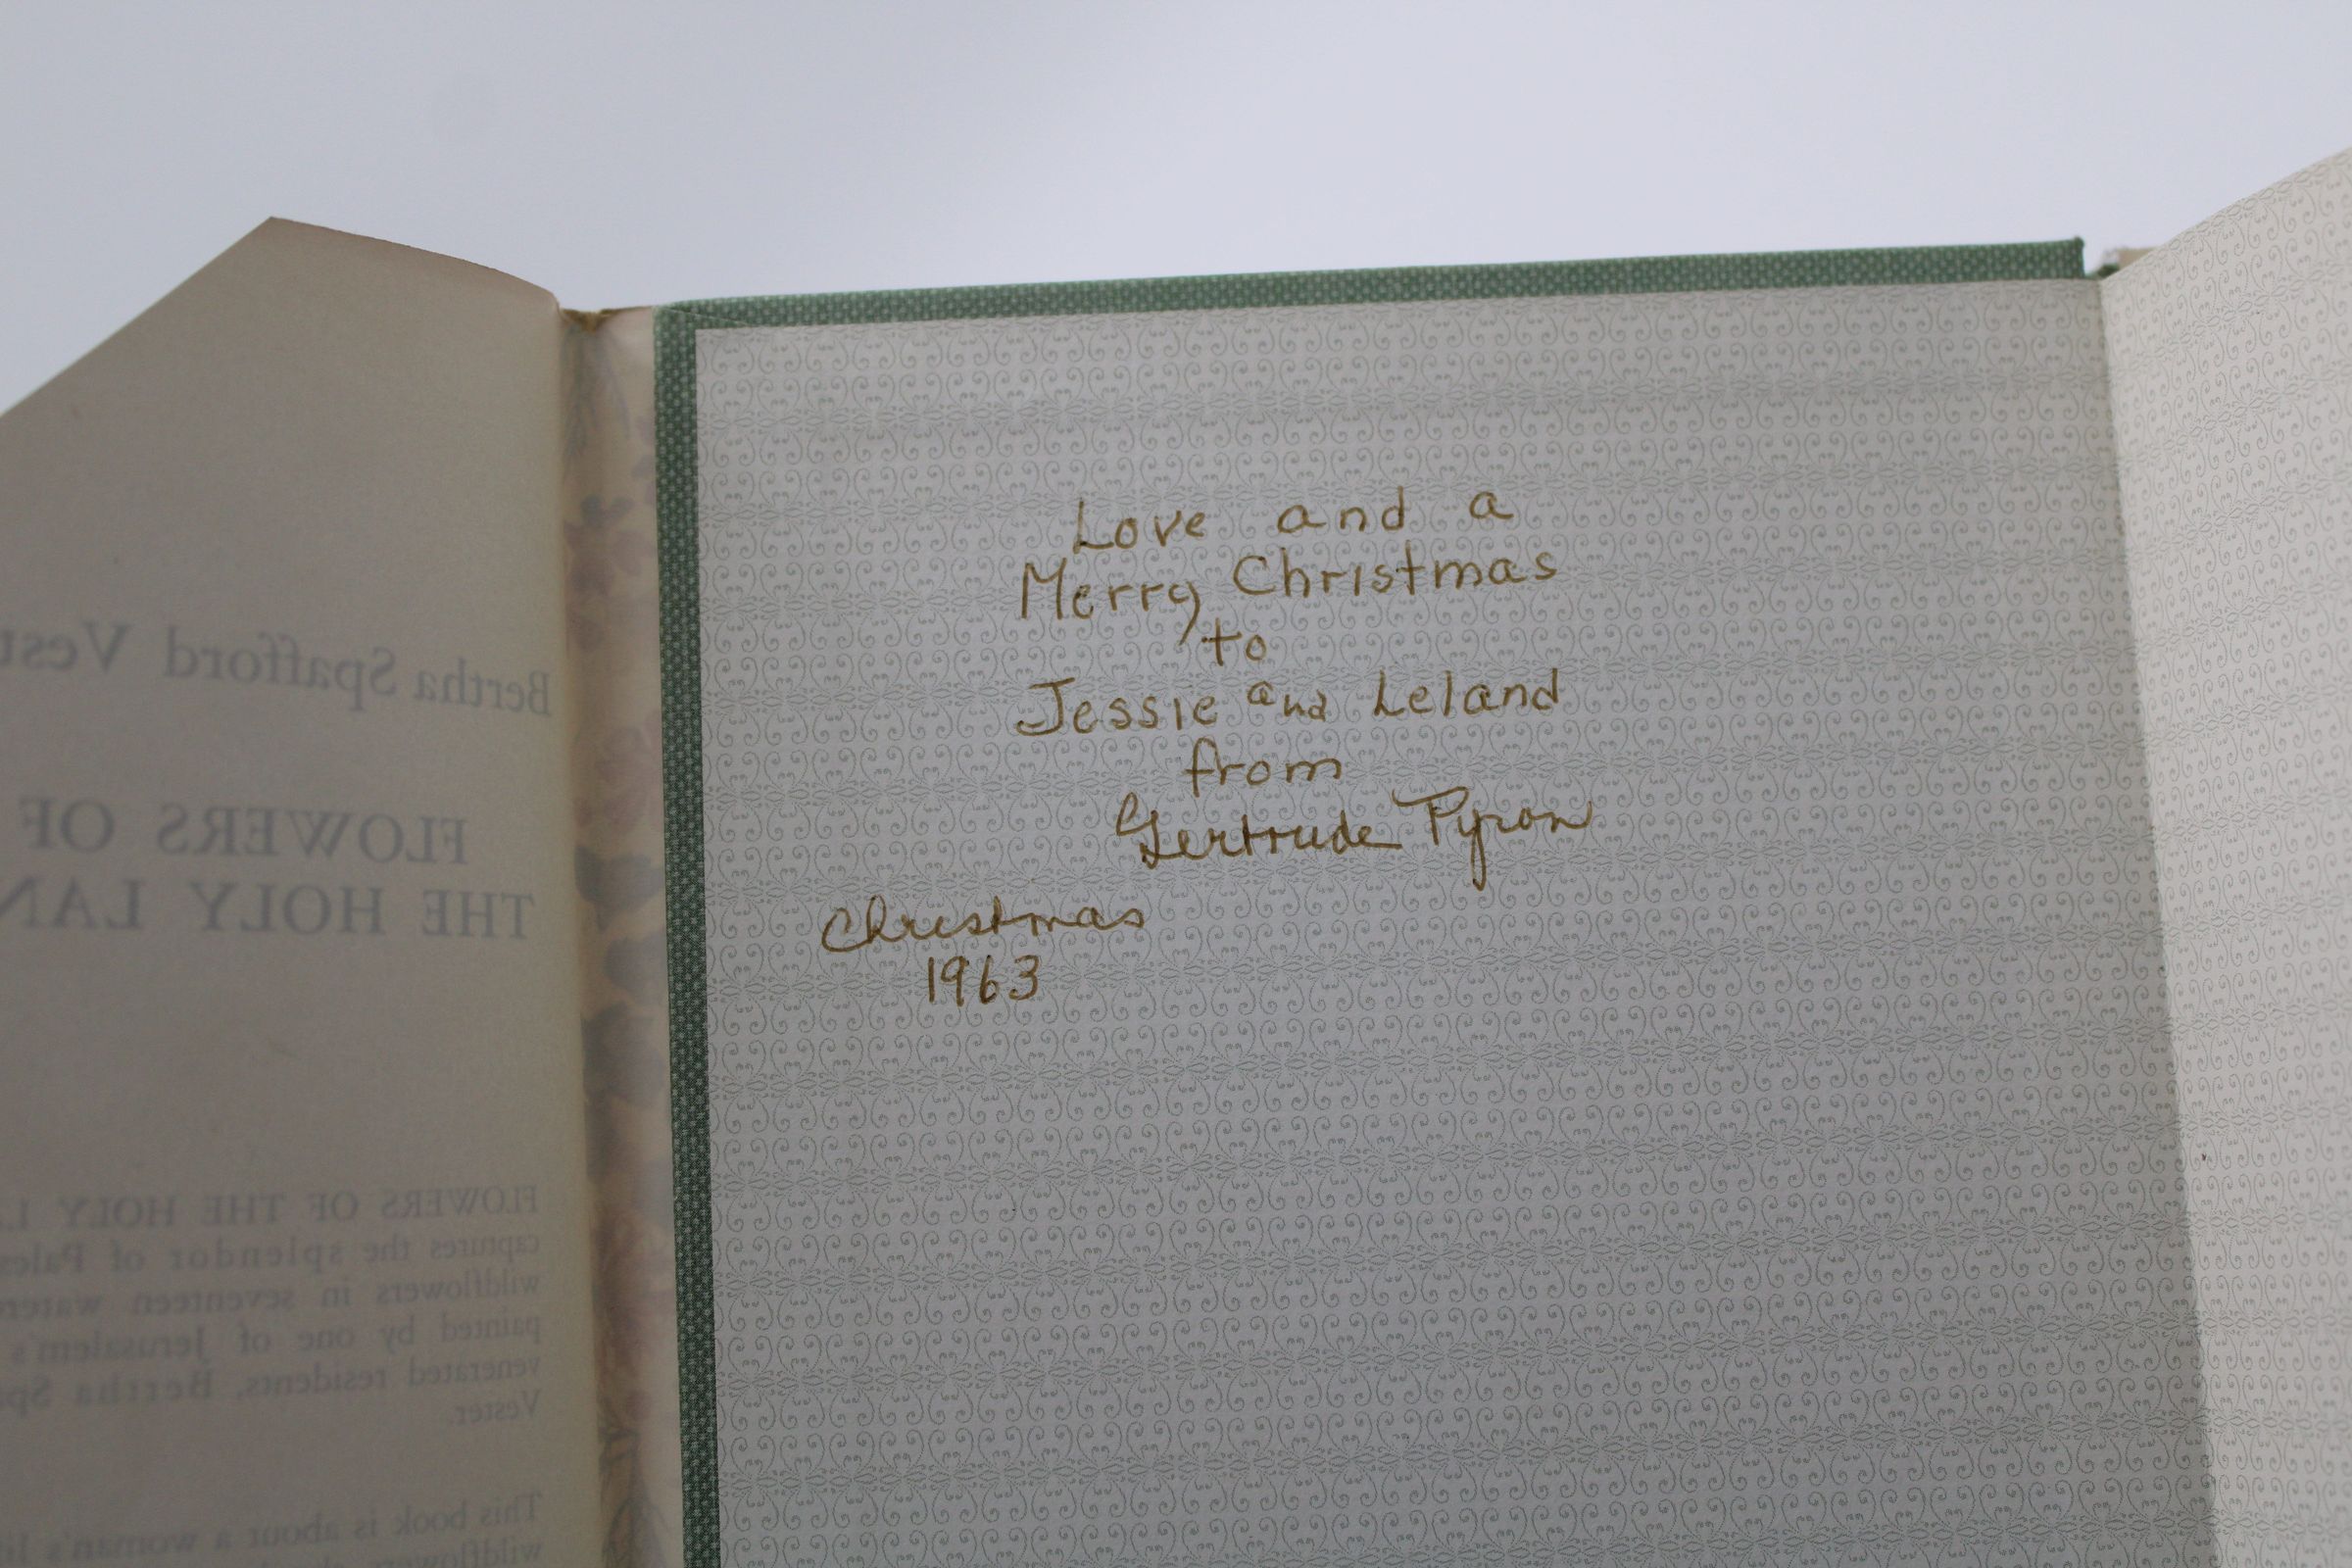 Bertha Spafford Vest
FLOWERS OF
THE HOLY LAN
FLOWERS OF THE HOLY LA
captures the splendor of Pales
wildflowers in seventeen water
painted by one of Jerusalem's
venerated residents, Bertha Spa
Vester.
This book is about a woman's li
wildflowers
Love and a
Merry Christmas
to
Jessie and Leland
from
Gertrude Pyron
Christmas
1963